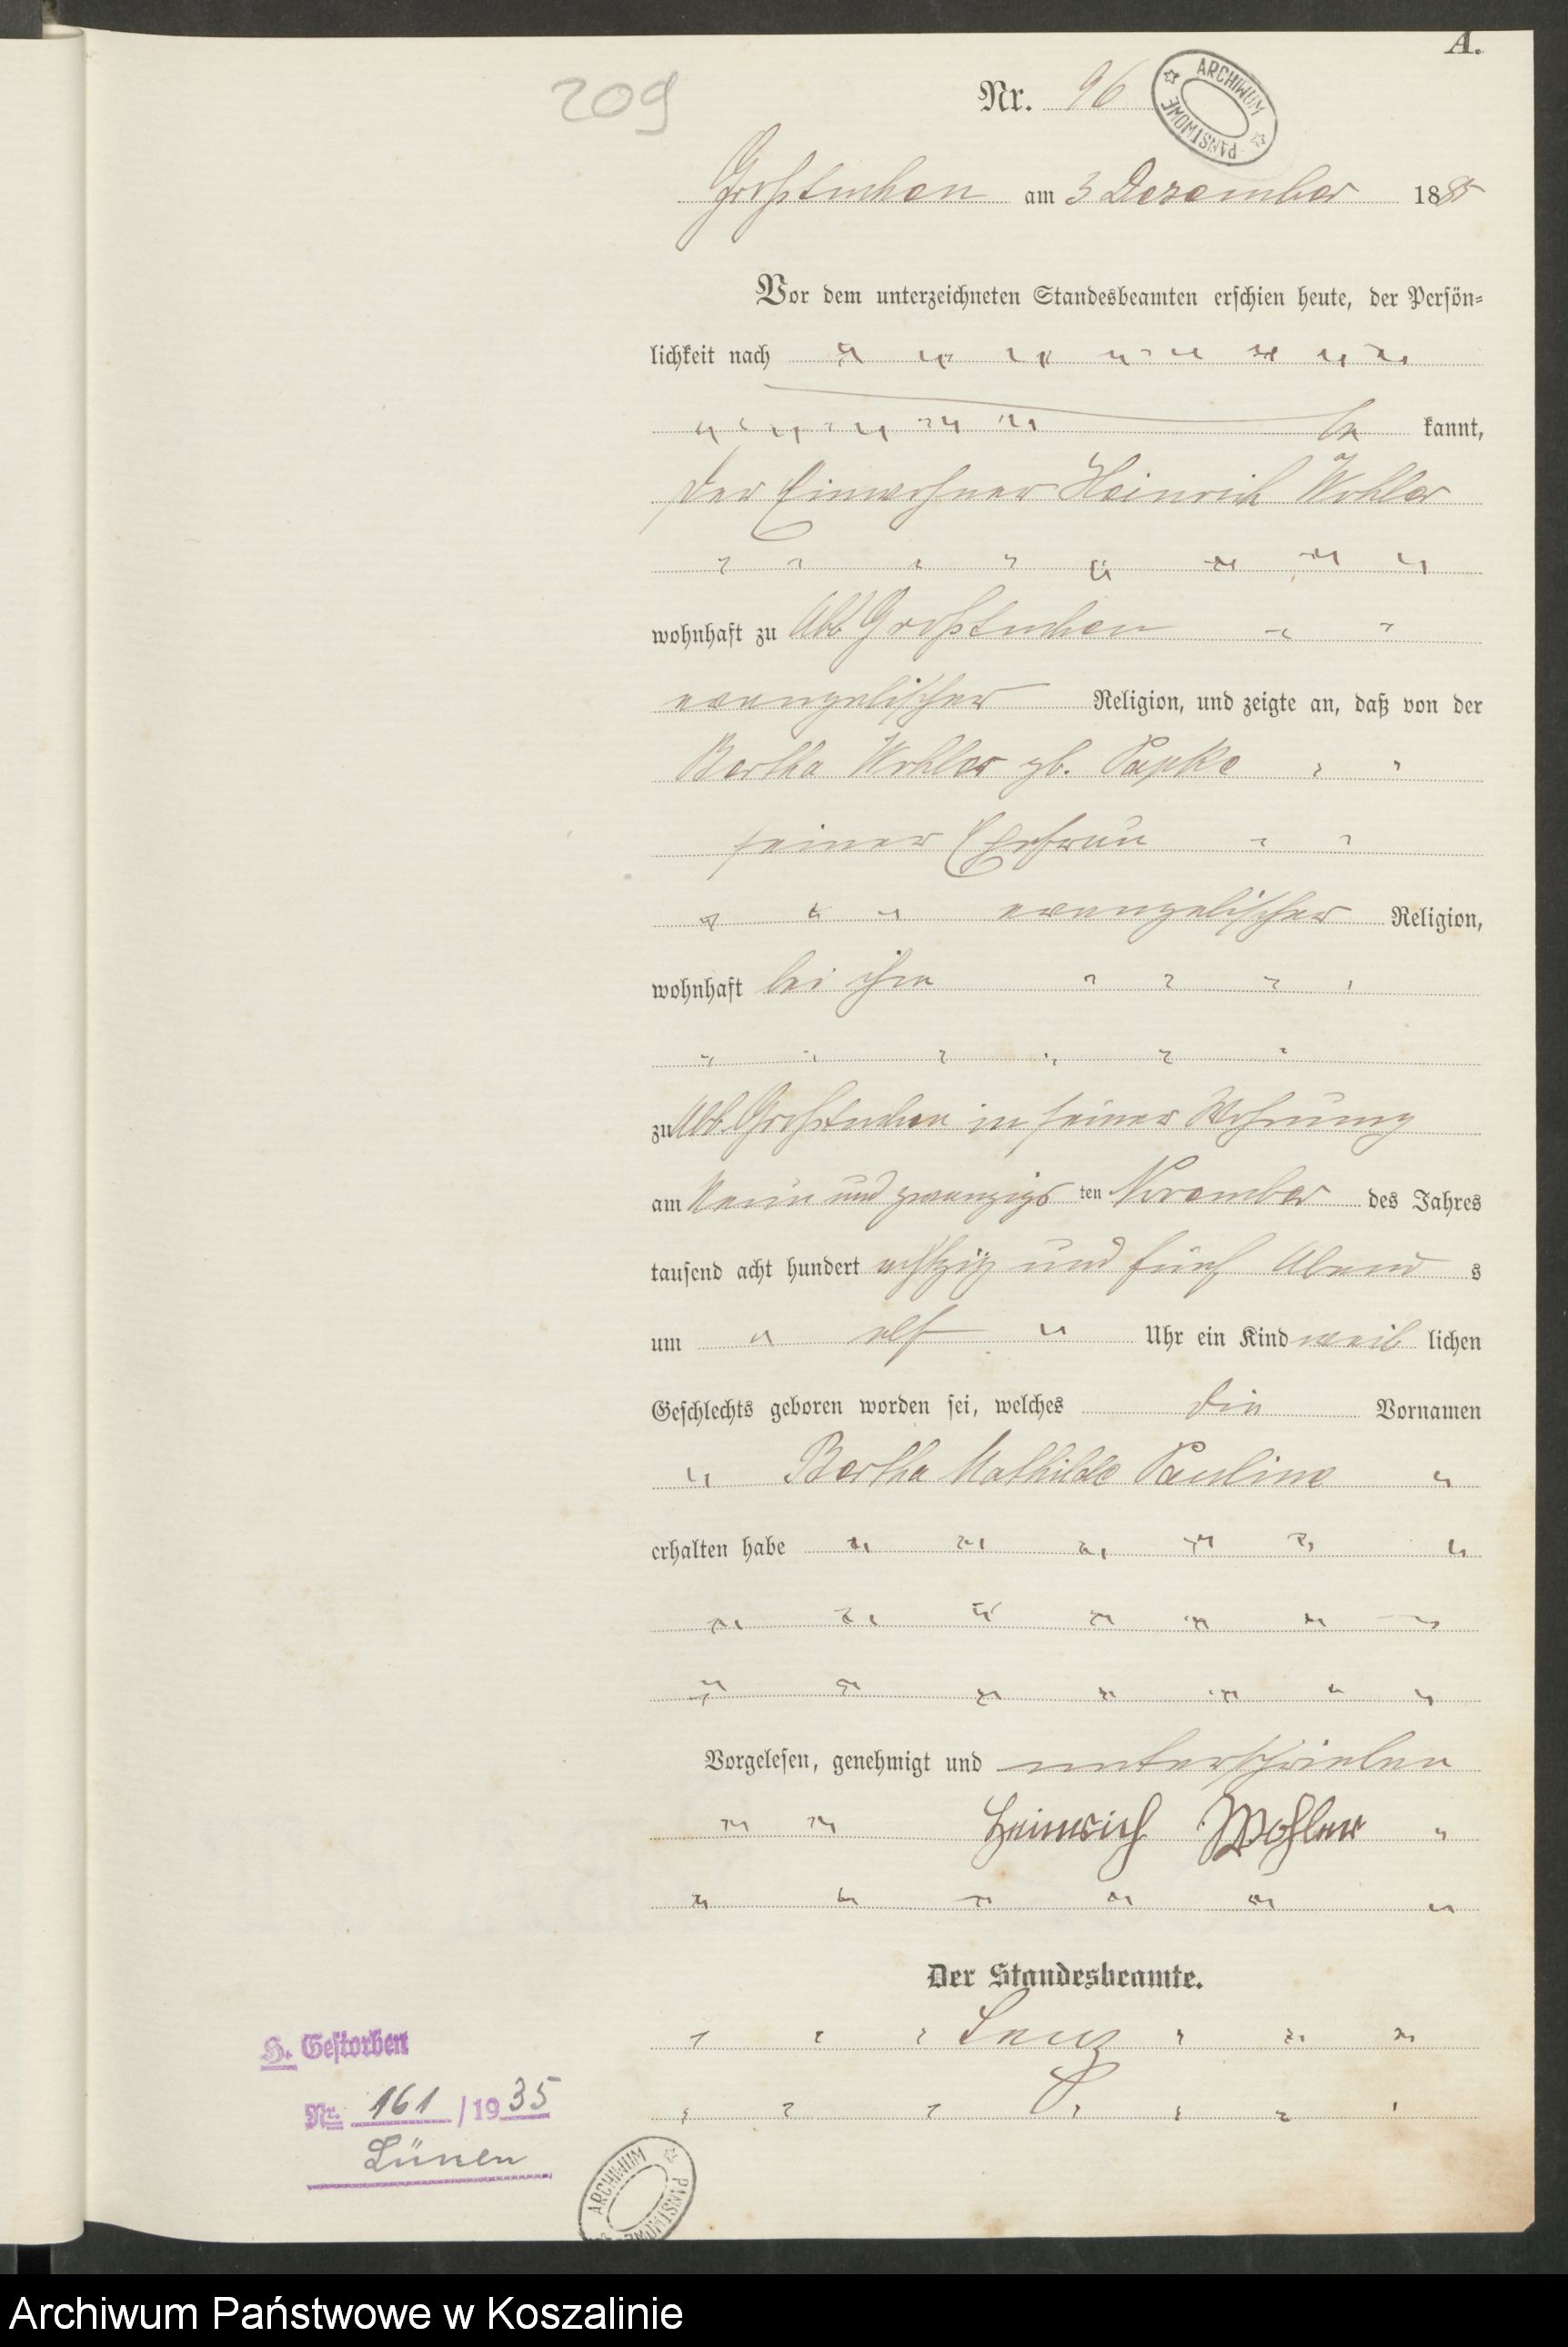 A.
209
Nr. 96
ARCHIWUM PAŃSTWOWE
Großtuchen am 3 Dezember 1885
Vor dem unterzeichneten Standesbeamten erschien heute, der Persön=
lichkeit nach
be kannt,
der Einwohner Heinrich Wohler
wohnhaft zu Abb. Großtuchen
evangelischer Religion, und zeigte an, daß von der
Bertha Wohler gb. Papke
seiner Ehefrau
evangelischer Religion,
wohnhaft bei ihm
zu Abb. Großtuchen in seiner Wohnung
am Neun und zwanzigs ten November des Jahres
tausend acht hundert achtzig und fünf Abend s
um elf Uhr ein Kind weib lichen
Geschlechts geboren worden sei, welches die Vornamen
Bertha Mathilde Pauline
erhalten habe
Vorgelesen, genehmigt und unterschrieben
Heinrich Wohler
Der Standesbeamte.
Lenz
H. Gestorben
Nr. 161 / 1935
Lünen
ARCHIWUM PAŃSTWOWE
Archiwum Państwowe w Koszalinie